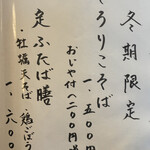 冬期限定
とろりこそば
一、五〇〇
おじや付(二〇〇円増
定ふたば膳
・牡蠣天そば 鶏ごぼう
一、六〇〇